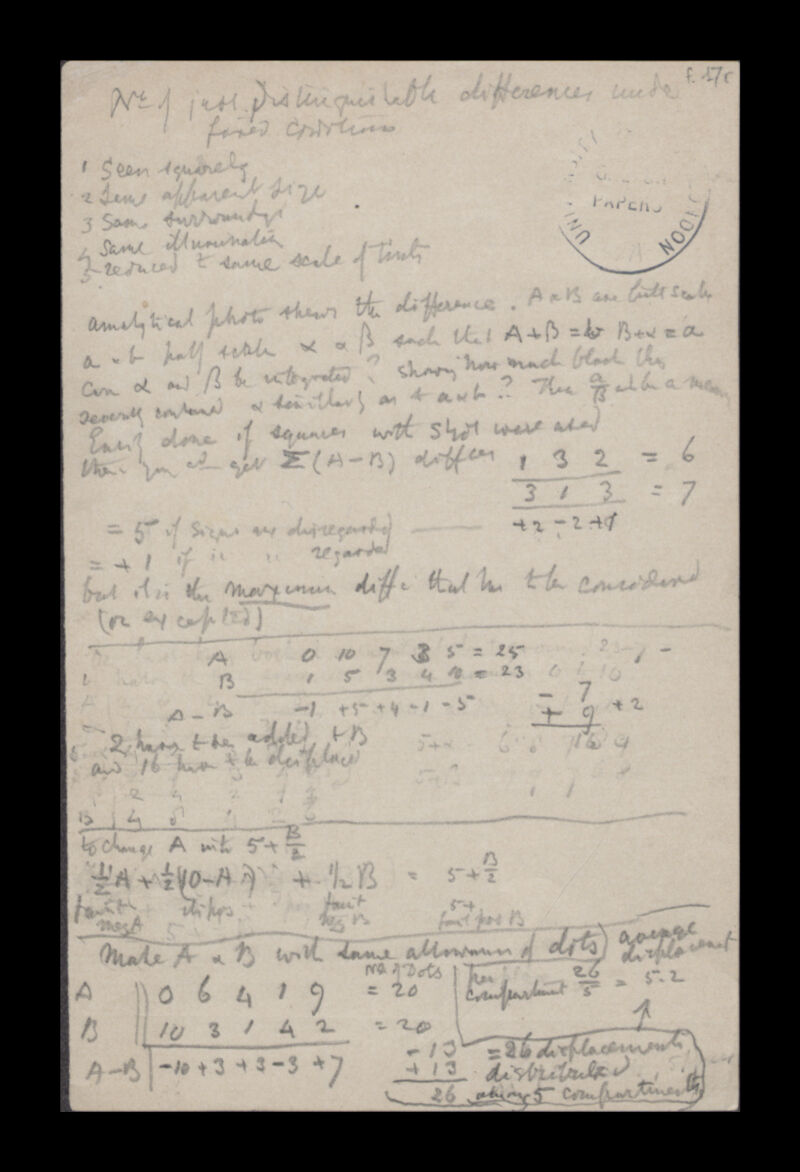 f. 17r
No of just distinguishable differences under
fixed conditions
1 Seen squarely
2 Same apparent size
3 Same surroundgs
4 Same illumination
5 reduced to same scale of tints
UNIVERSITY LONDON
GALTON
PAPERS
analytical photo shews the difference. A & B are full scale
a & b half scale α & β such that A+β = b B+α = a
Can α and β be integrated? showing how much black they
severally contained & similarly as to a & b ? Then
Easily done if squares with shot were used
then you can get Σ(A−B) differ
1 3 2 = 6
3 1 3 = 7
+2 −2 +1
= 5 if signs are disregarded
= +1 if regarded
but it is the maximum diffce that has to be considered
(or excepted)
A 0 10 7 3 5 = 25
B 1 5 3 4 10 = 23
A−B −1 +5 +4 −1 −5
− 7
+ 9 +2
16
2 have to be added to B
and 16 have to be displaced
to change A into 5+B/2
½A + ½(10−A) + ½B = 5+B/2
faint neg A
dispos
faint neg B
5+ faint pos B
Make A & B with same allowance of dots
No of Dots
A 0 6 4 1 9 = 20
B 10 3 1 4 2 = 20
A−B −10 +3 +3 −3 +7
average displacement
per compartment 26/5 = 5.2
−13
+13
26
= 26 displacements
distributed
among 5 compartments